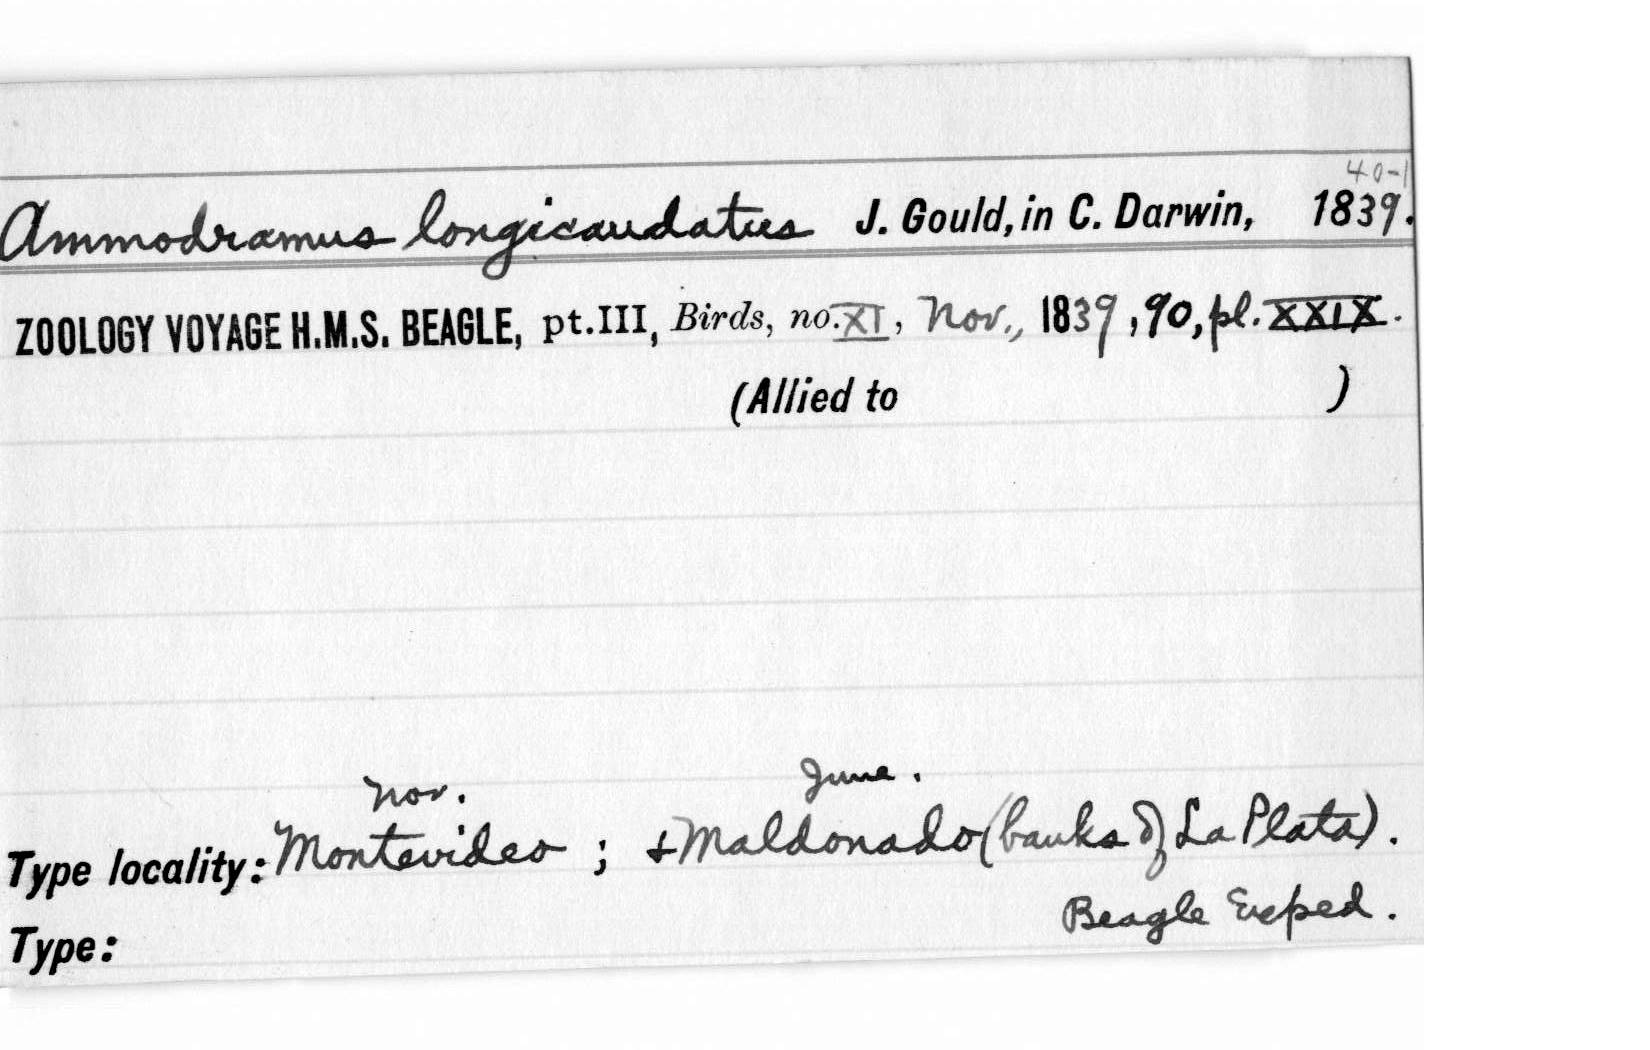 40-1
Ammodramus longicaudatus J. Gould, in C. Darwin, 1839.
ZOOLOGY VOYAGE H.M.S. BEAGLE, pt.III, Birds, no. XI, Nov., 1839, 90, pl. XXIX.
(Allied to )
Nov. June.
Type locality: Montevideo; + Maldonado (banks of La Plata).
Beagle Exped.
Type: